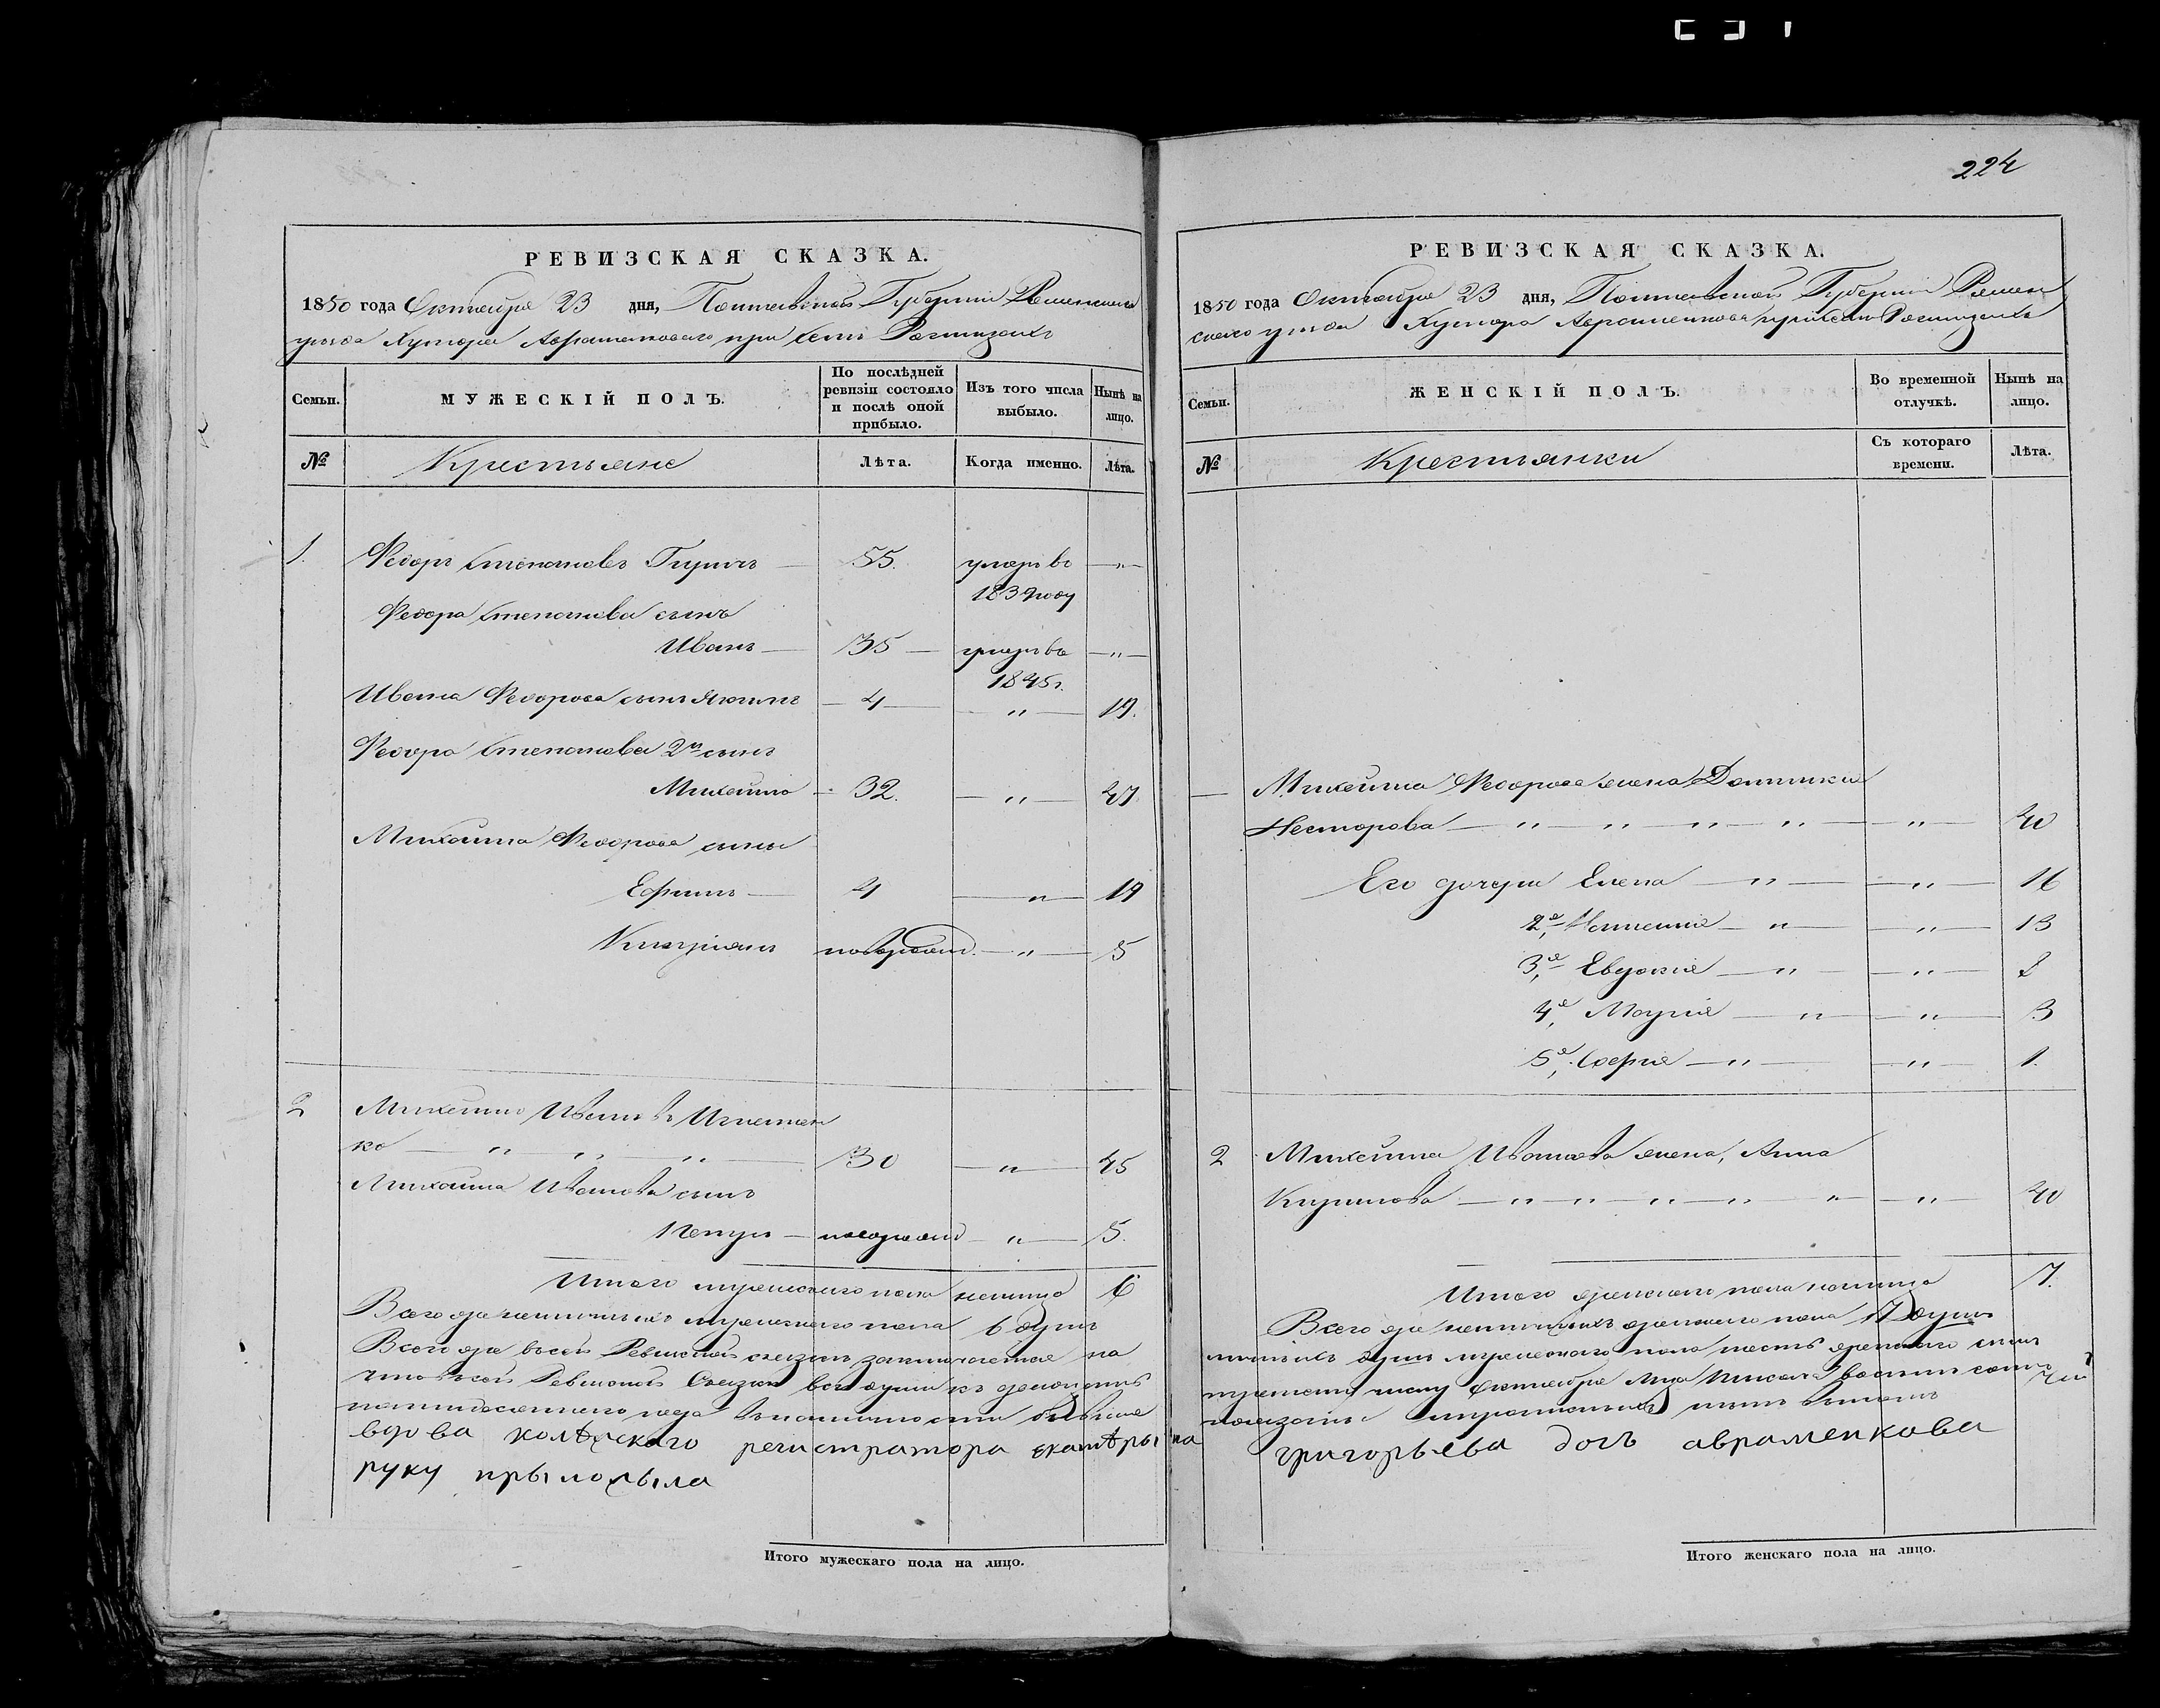 224
РЕВИЗСКАЯ СКАЗКА.
1850 года Октября 23 дня, Полтавской Губернии Роменскаго
уезда Хутора Авраменкового при селе
Семьи.
МУЖЕСКІЙ ПОЛЪ.
По послѣдней ревизіи состояло и послѣ оной прибыло.
Изъ того числа выбыло.
Нынѣ на лицо.
№
Крестьяне
Лѣта.
Когда именно.
Лѣта.
1. Федоръ Степановъ 55. умеръ въ —"—
1839 году
Федора Степанова сынъ
Иванъ — 35 — умеръ въ —"—
1845г.
Ивана Федорова сынъ Якимъ — 4 — " — 19.
Федора Степанова 2й сынъ
Михайло — 32. — " — 47
Михайла Федорова сыны
Ефимъ — 4 — " — 19
Киприянъ новорожд. — " — 5
2 Михайло Ивановъ Игнатен
ко — " " " — 30 — " — 45
Михайла Иванова сынъ
Петръ — новорожд — " — 5.
Итого мужескаго пола налицо 6
Всего же наличныхъ мужескаго пола 6 душъ
Всего же въ сей Ревизской сказке заключается на
что въ сей Ревизской Сказке все души къ
вдова колѣскаго регистратора екатѣрына
руку прыложыла
Итого мужескаго пола на лицо.
РЕВИЗСКАЯ СКАЗКА.
1850 года Октября 23 дня, Полтавской Губернии Ромен
скаго уезда Хутора Авраменкова при селе
Семьи.
ЖЕНСКІЙ ПОЛЪ.
Во временной отлучкѣ.
Нынѣ на лицо.
№
Крестьянки
Съ котораго времени.
Лѣта.
— Михайла Федорова жена Домникия
Несторова — " — " — " — " — " — 40
Его дочери Елена — " — " — 16
2я, — " — " — 13
3я, Евдокия — " — " — 8
4я, Мария — " — " — 3
5я, София — " — " — 1.
2 Михайла Иванова жена, Анна
Кирилова — " — " — " — " — " — " — 40
Итого женского пола налицо 7.
Всего же наличныхъ женскаго пола 7 душъ
личныхъ душъ мужескаго пола шесть женскаго семь
числу Октября Мца тысяча восемь сотъ
григорьева дочъ авраменкова
Итого женскаго пола на лицо.